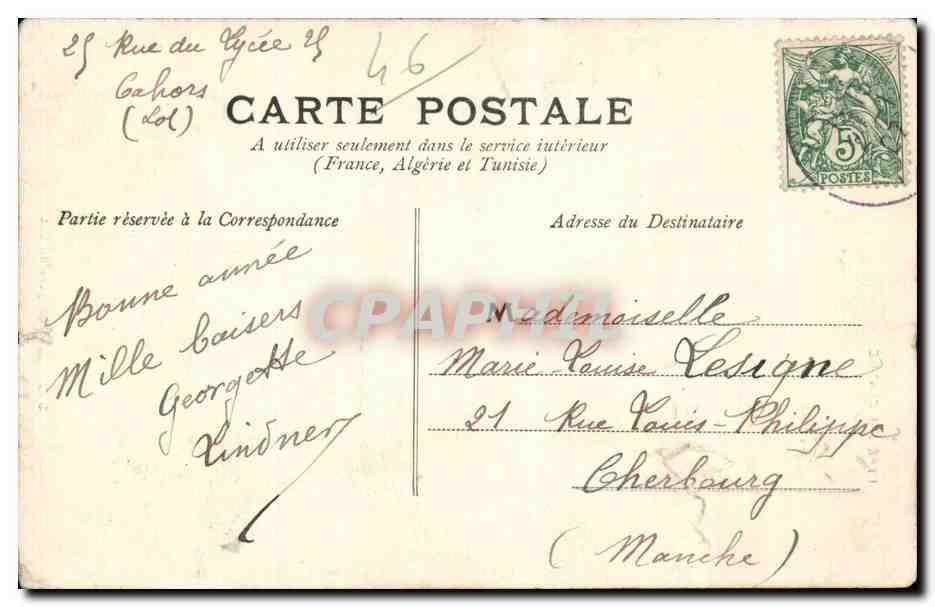 25 Rue du Lycée 25
Cahors
(Lot)
46
CARTE POSTALE
A utiliser seulement dans le service intérieur
(France, Algérie et Tunisie)
5c
POSTES
Partie réservée à la Correspondance
Adresse du Destinataire
Bonne année
Mille baisers
Georgette
Lindner
CPAPHIL
Mademoiselle
Marie-Louise Lesigne
21 Rue Louis-Philippe
Cherbourg
(Manche)